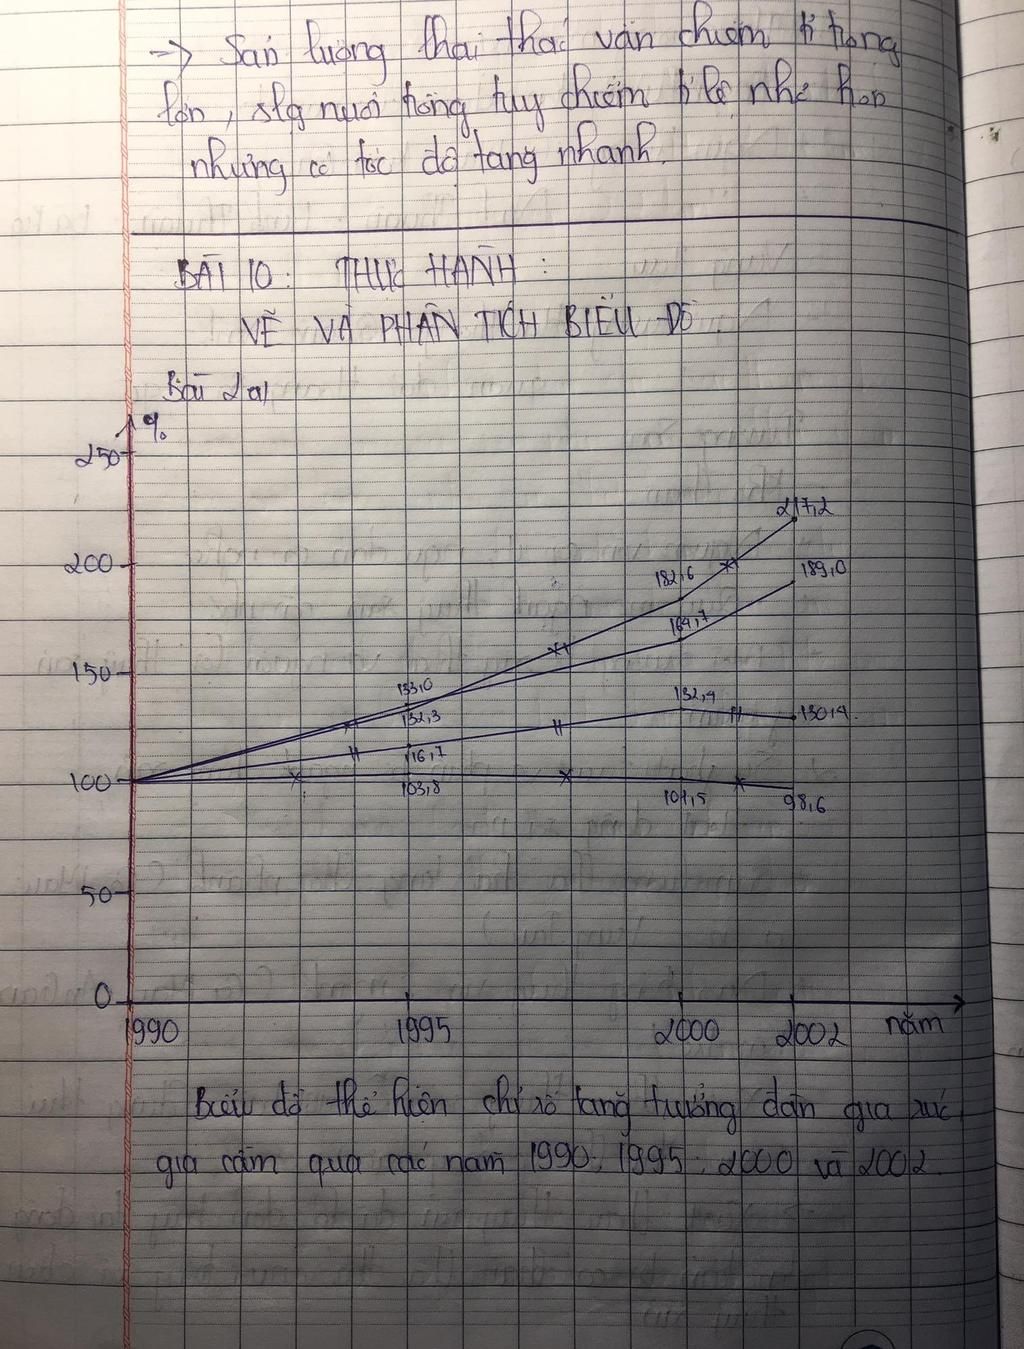 → Sản lượng khai thác vẫn chiếm tỉ trọng
lớn, slg nuôi trồng tuy chiếm tỉ lệ nhỏ hơn
nhưng có tốc độ tăng nhanh.
BÀI 10: THỰC HÀNH:
VẼ VÀ PHÂN TÍCH BIỂU ĐỒ.
Bài 2a)
%
250
217,2
200
182,6
189,0
164,7
150
133,0
132,4
132,3
130,4
116,7
100
103,8
101,5
98,6
50
0
1990 1995 2000 2002 năm
Biểu đồ thể hiện chỉ số tăng trưởng đàn gia súc
gia cầm qua các năm 1990, 1995, 2000 và 2002.